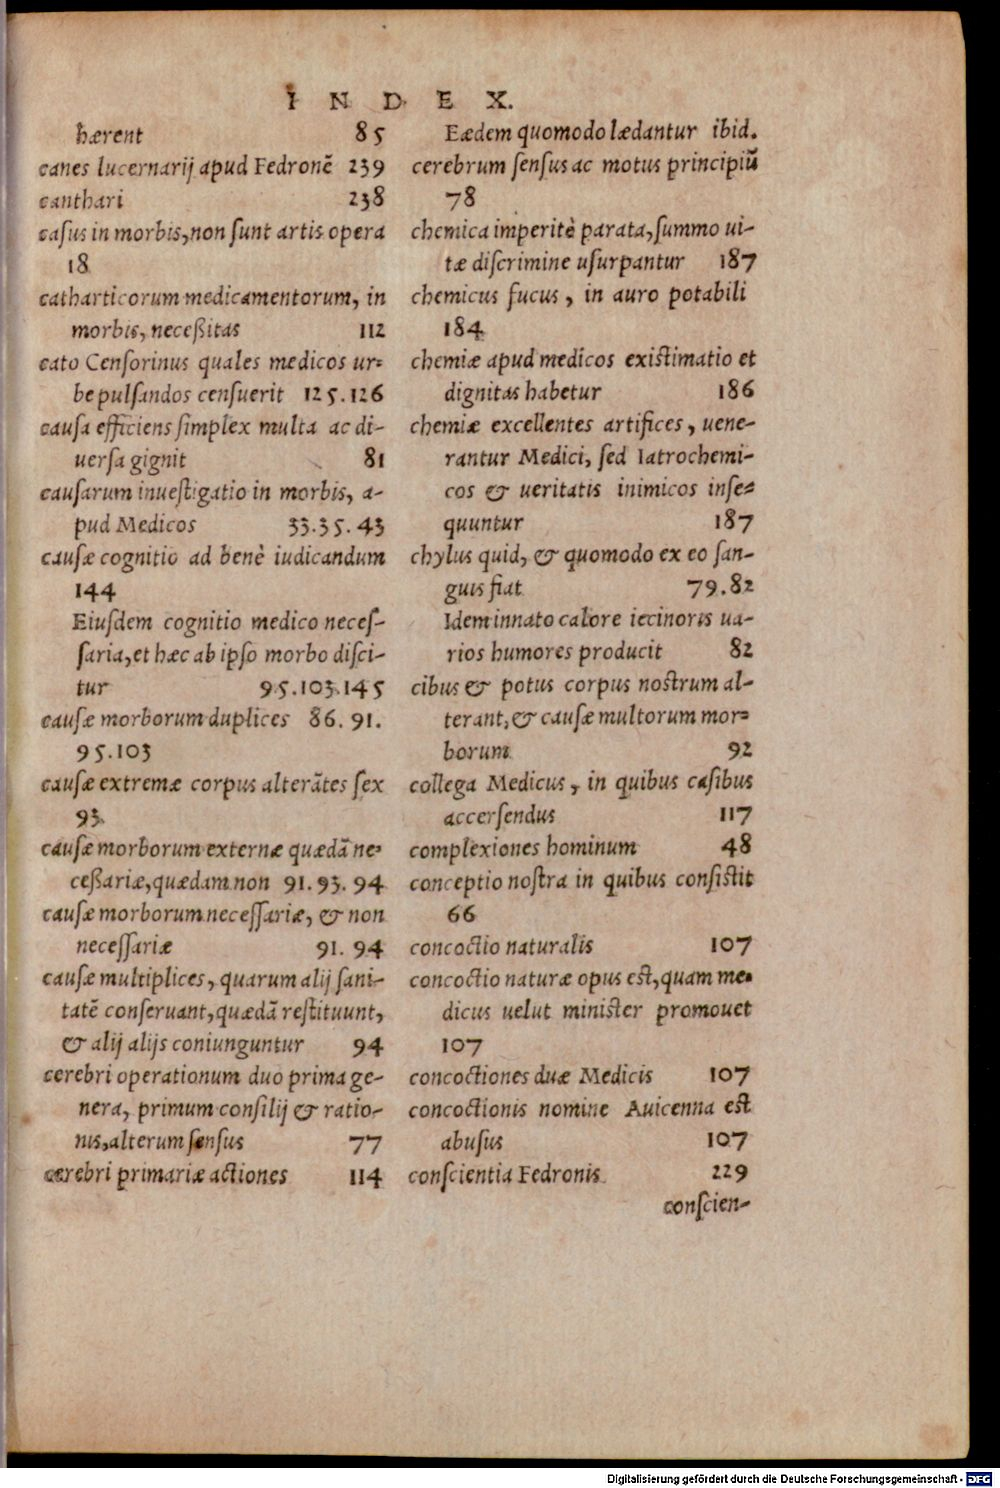 INDEX.
hærent 85
canes lucernarij apud Fedronē 239
canthari 238
casus in morbis, non sunt artis opera
18
catharticorum medicamentorum, in
morbis, neceßitas 112
cato Censorinus quales medicos ur-
be pulsandos censuerit 125.126
causa efficiens simplex multa ac di-
uersa gignit 81
causarum inuestigatio in morbis, a-
pud Medicos 33.35.43
causæ cognitio ad benè iudicandum
144
Eiusdem cognitio medico neces-
saria, et hæc ab ipso morbo disci-
tur 95.103.145
causæ morborum duplices 86. 91.
95.103
causæ extremæ corpus alterātes sex
93
causæ morborum externæ quædā ne-
ceßariæ, quædam non 91.93.94
causæ morborum necessariæ, & non
necessariæ 91. 94
causæ multiplices, quarum alij sani-
tatē conseruant, quædā restituunt,
& alij alijs coniunguntur 94
cerebri operationum duo prima ge-
nera, primum consilij & ratio-
nis, alterum sensus 77
cerebri primariæ actiones 114
Eædem quomodo lædantur ibid.
cerebrum sensus ac motus principiū
78
chemica imperitè parata, summo ui-
tæ discrimine usurpantur 187
chemicus fucus, in auro potabili
184
chemiæ apud medicos existimatio et
dignitas habetur 186
chemiæ excellentes artifices, uene-
rantur Medici, sed Iatrochemi-
cos & ueritatis inimicos inse-
quuntur 187
chylus quid, & quomodo ex eo san-
guis fiat 79.82
Idem innato calore iecinoris ua-
rios humores producit 82
cibus & potus corpus nostrum al-
terant, & causæ multorum mor-
borum 92
collega Medicus, in quibus casibus
accersendus 117
complexiones hominum 48
conceptio nostra in quibus consistit
66
concoctio naturalis 107
concoctio naturæ opus est, quam me-
dicus uelut minister promouet
107
concoctiones duæ Medicis 107
concoctionis nomine Auicenna est
abusus 107
conscientia Fedronis 229
conscien-
Digitalisierung gefördert durch die Deutsche Forschungsgemeinschaft - DFG